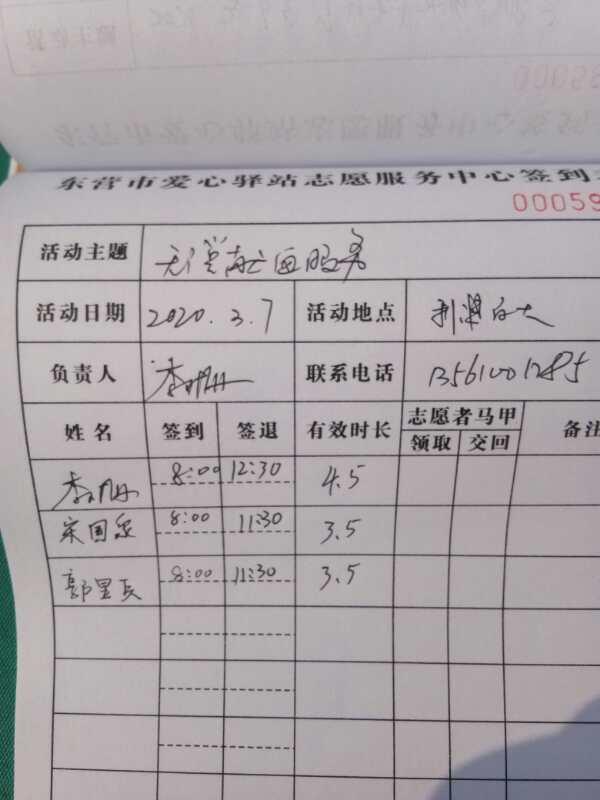 东营市爱心驿站志愿服务中心签到
00059
活动主题 无偿献血服务
活动日期 2020.3.7 活动地点
负责人 联系电话
姓名 签到 签退 有效时长 志愿者马甲 备注
领取 交回
8:00 12:30 4.5
宋国 8:00 11:30 3.5
郭 8:00 11:30 3.5